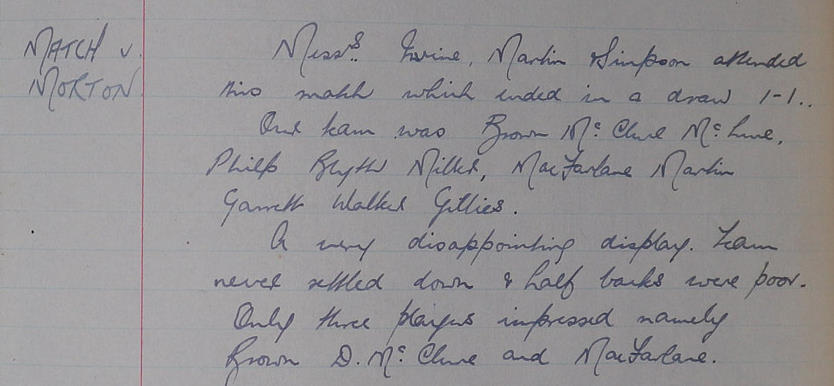 MATCH v.
MORTON.
Messrs. Irvine, Martin & Simpson attended
this match which ended in a draw 1-1..
Our team was Brown Mc Clure Mc Lure,
Philp Blyth Miller, MacFarlane Martin
Garrett Walker Gillies.
A very disappointing display. Team
never settled down & half backs were poor.
Only three players impressed namely
Brown D. Mc Clure and MacFarlane.